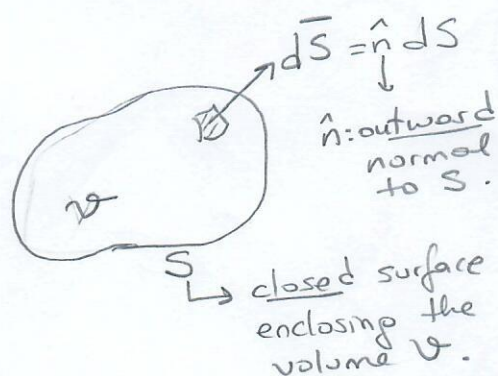 dS̅ = n̂ dS
n̂: outward
normal
to S.
v
S
closed surface
enclosing the
volume v.